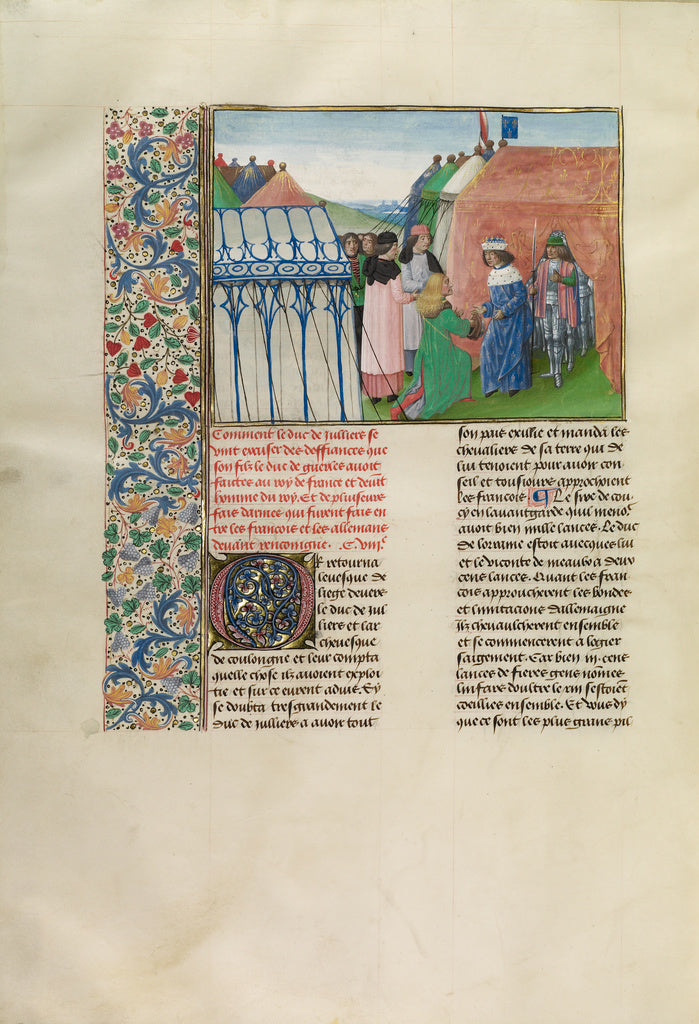 Comment le duc de julliers se
vint excuser des deffiances que
son filz le duc de guerles auoit
faictes au roy de france et deuit
homme du roy. Et de plusieurs
fais darmes qui furent fais en
tre les francois et les allemans
deuant rencoingne. C. viij.
Or retourna
leuesque de
liege deuers
le duc de jul
liers et lar
cheuesque
de coulongne et leur compta
quelle chose ilz auoient exploi
tie et sur ce eurent aduis. Et
se doubta tresgrandement le
duc de julliers a auoir tout
son pais exillie et manda les
cheualiers de sa terre qui de
lui tenoient pour auoir con
seil et tousiours approchoient
les francois. Le sire de cou
cy en lauantgarde qui menoit
auoit bien mille lances. Le duc
de lorraine estoit auecques lui
et le viconte de meaulx a deux
cens lances. Quant les fran
cois approucherent les bondes
et limitacions dallemaigne
ilz cheuaulcherent ensemble
et se commencerent a logier
saigement. Car bien m. cens
lances de fieres gens nommes
linfars doultre le rin sestoient
coeillies ensemble. Et vous dy
que ce sont les plus grans pil